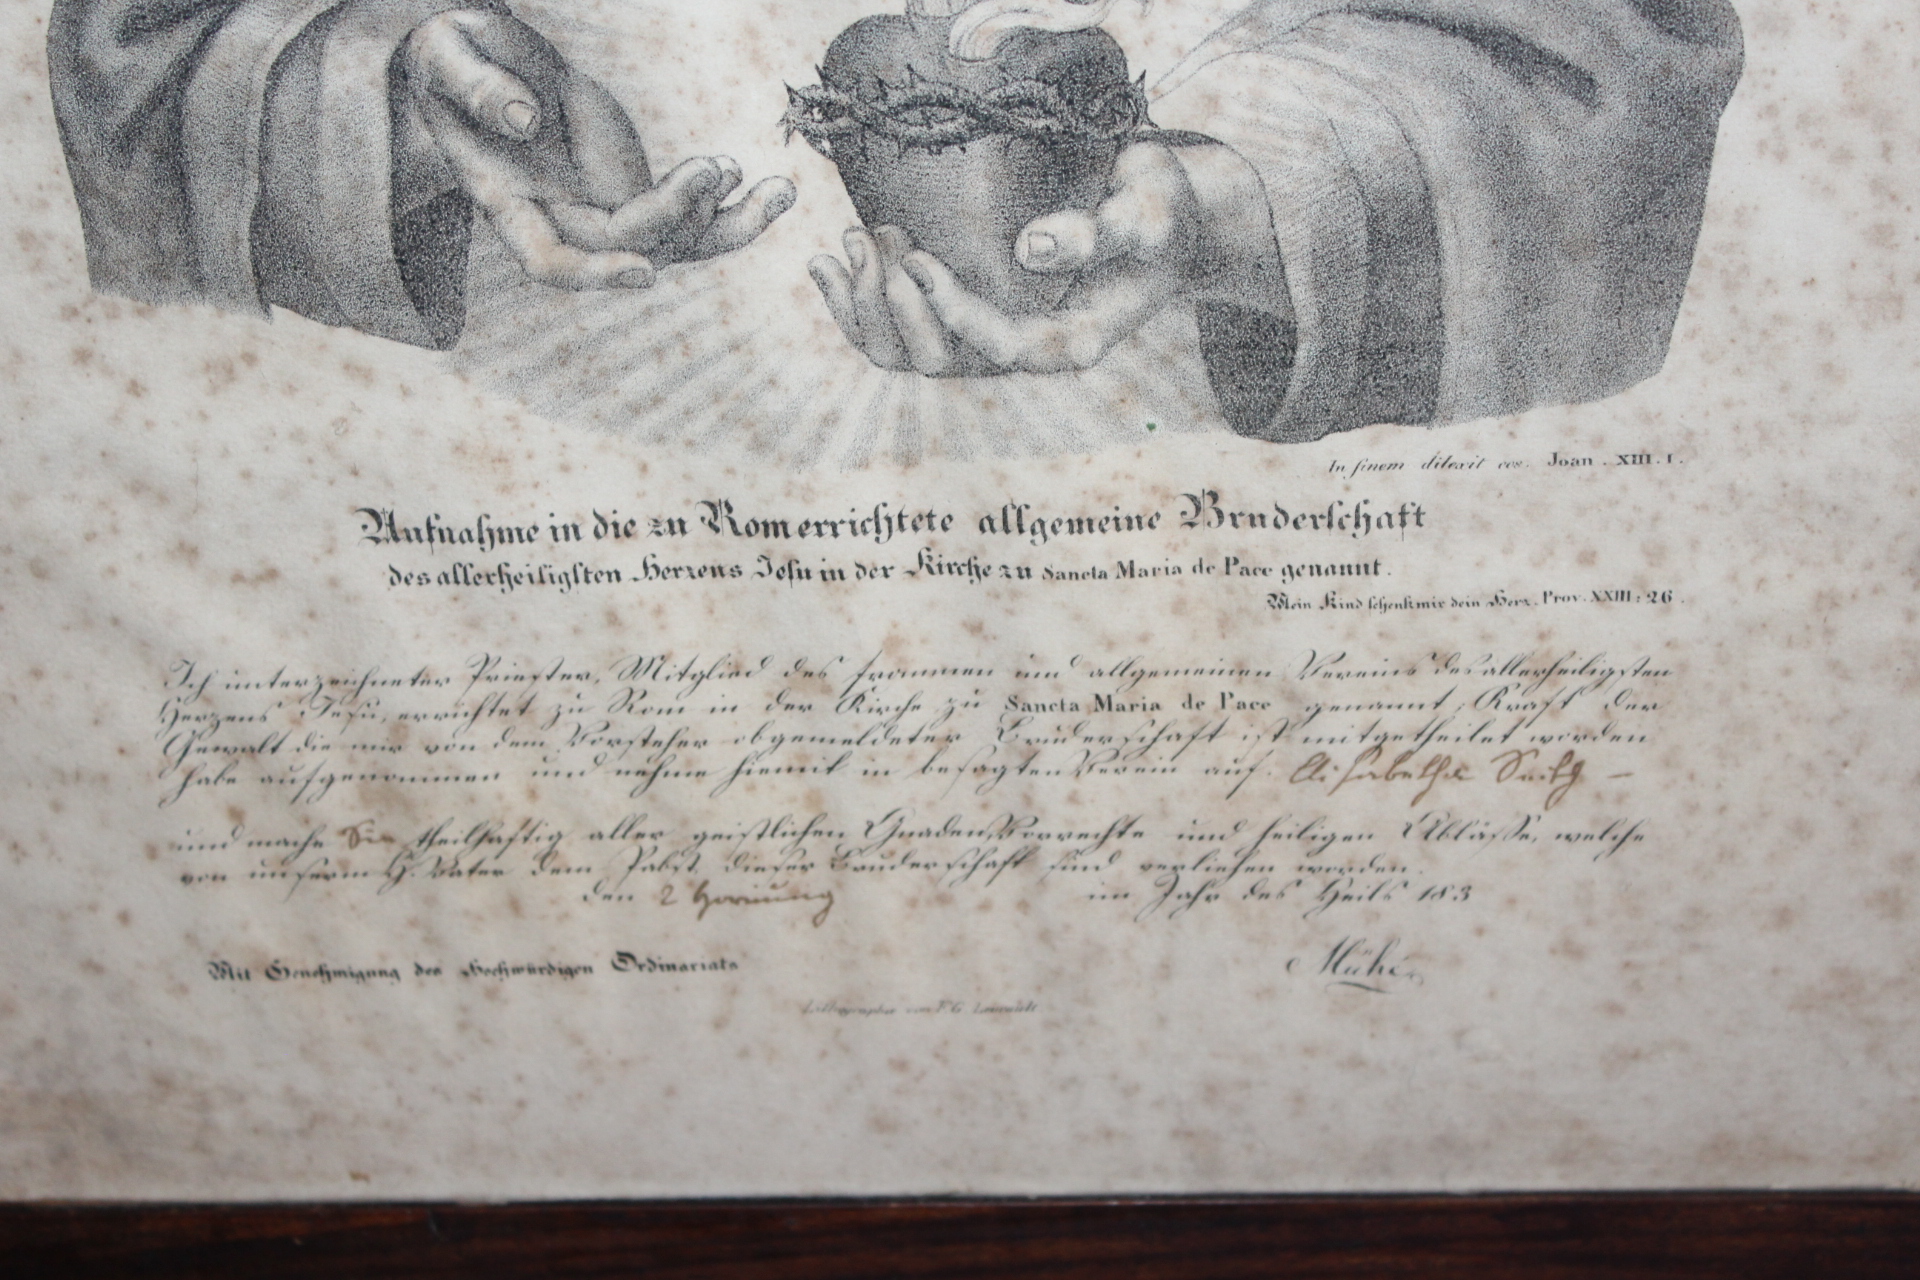 In finem dilexit eos. Joan. XIII. 1.
Aufnahme in die zu Rom errichtete allgemeine Bruderschaft
des allerheiligsten Herzens Jesu in der Kirche zu Sancta Maria de Pace genannt.
Mein Kind schenk mir dein Herz. Prov. XXIII: 26.
Ich unterzeichneter Priester, Mitglied des frommen und allgemeinen Vereins des allerheiligsten
Herzens Jesu, errichtet zu Rom in der Kirche zu Sancta Maria de Pace genannt; Kraft der
Gewalt die mir von dem Vorsteher obgemeldeter Bruderschaft ist mitgetheilet worden
habe aufgenommen und nehme hiemit in besagten Verein auf. Elisabetha
und mache Sie theilhaftig aller geistlichen Gnaden, Vorrechte und heiligen Abläße, welche
von unserm H. Vater dem Pabst, dieser Bruderschaft sind verliehen worden.
den 2 Hornung im Jahr des Heils 183
Mit Genehmigung des Hochwürdigen Ordinariats
Mühe
Lithographie von F. G.